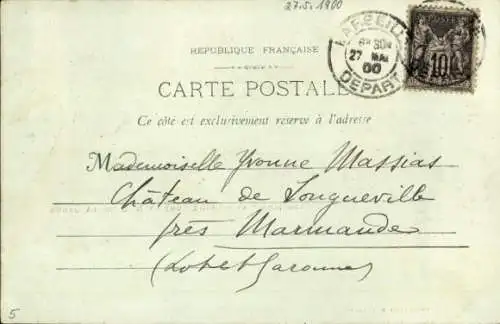 27.5.1900
RÉPUBLIQUE FRANÇAISE
CARTE POSTALE
Ce côté est exclusivement réservé à l'adresse
MARSEILLE
6E 30M
27 MAI
00
DEPART
POSTES
10
Mademoiselle Yvonne Massias
Château de Longueville
près Marmande
(Lot et Garonne)
5